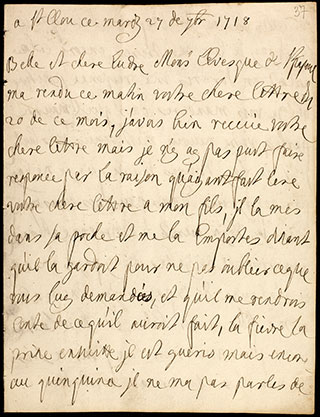 37
a st Clou ce mardy 27 de 7br 1718
Belle et chere Mons Evesque de
ma rendu ce matin vostre chere lettre du
20 de ce mois, javois bien receüe vostre
chere lettre mais je n'y ay pas peut faire
responce par la raison quayant fait lire
vostre chere lettre a mon fils, il la mes
dans sa poche et me la Emportes disant
quil la gardoit pour ne pas oublier ce que
vous luy demandées, et quil me rendroit
conte de ce quil auroit fait, la fievre la
prise ensuitte il est gueris mais
au quinquina il ne ma pas parles de